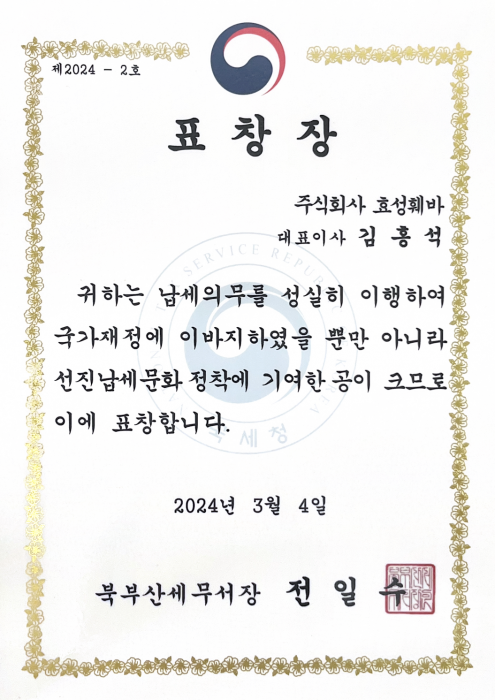 제2024 - 2호
표창장
주식회사 효성훼바
대표이사 김홍석
귀하는 납세의무를 성실히 이행하여
국가재정에 이바지하였을 뿐만 아니라
선진납세문화 정착에 기여한 공이 크므로
이에 표창합니다.
SERVICE REPU
국세청
2024년 3월 4일
북부산세무서장 전일수